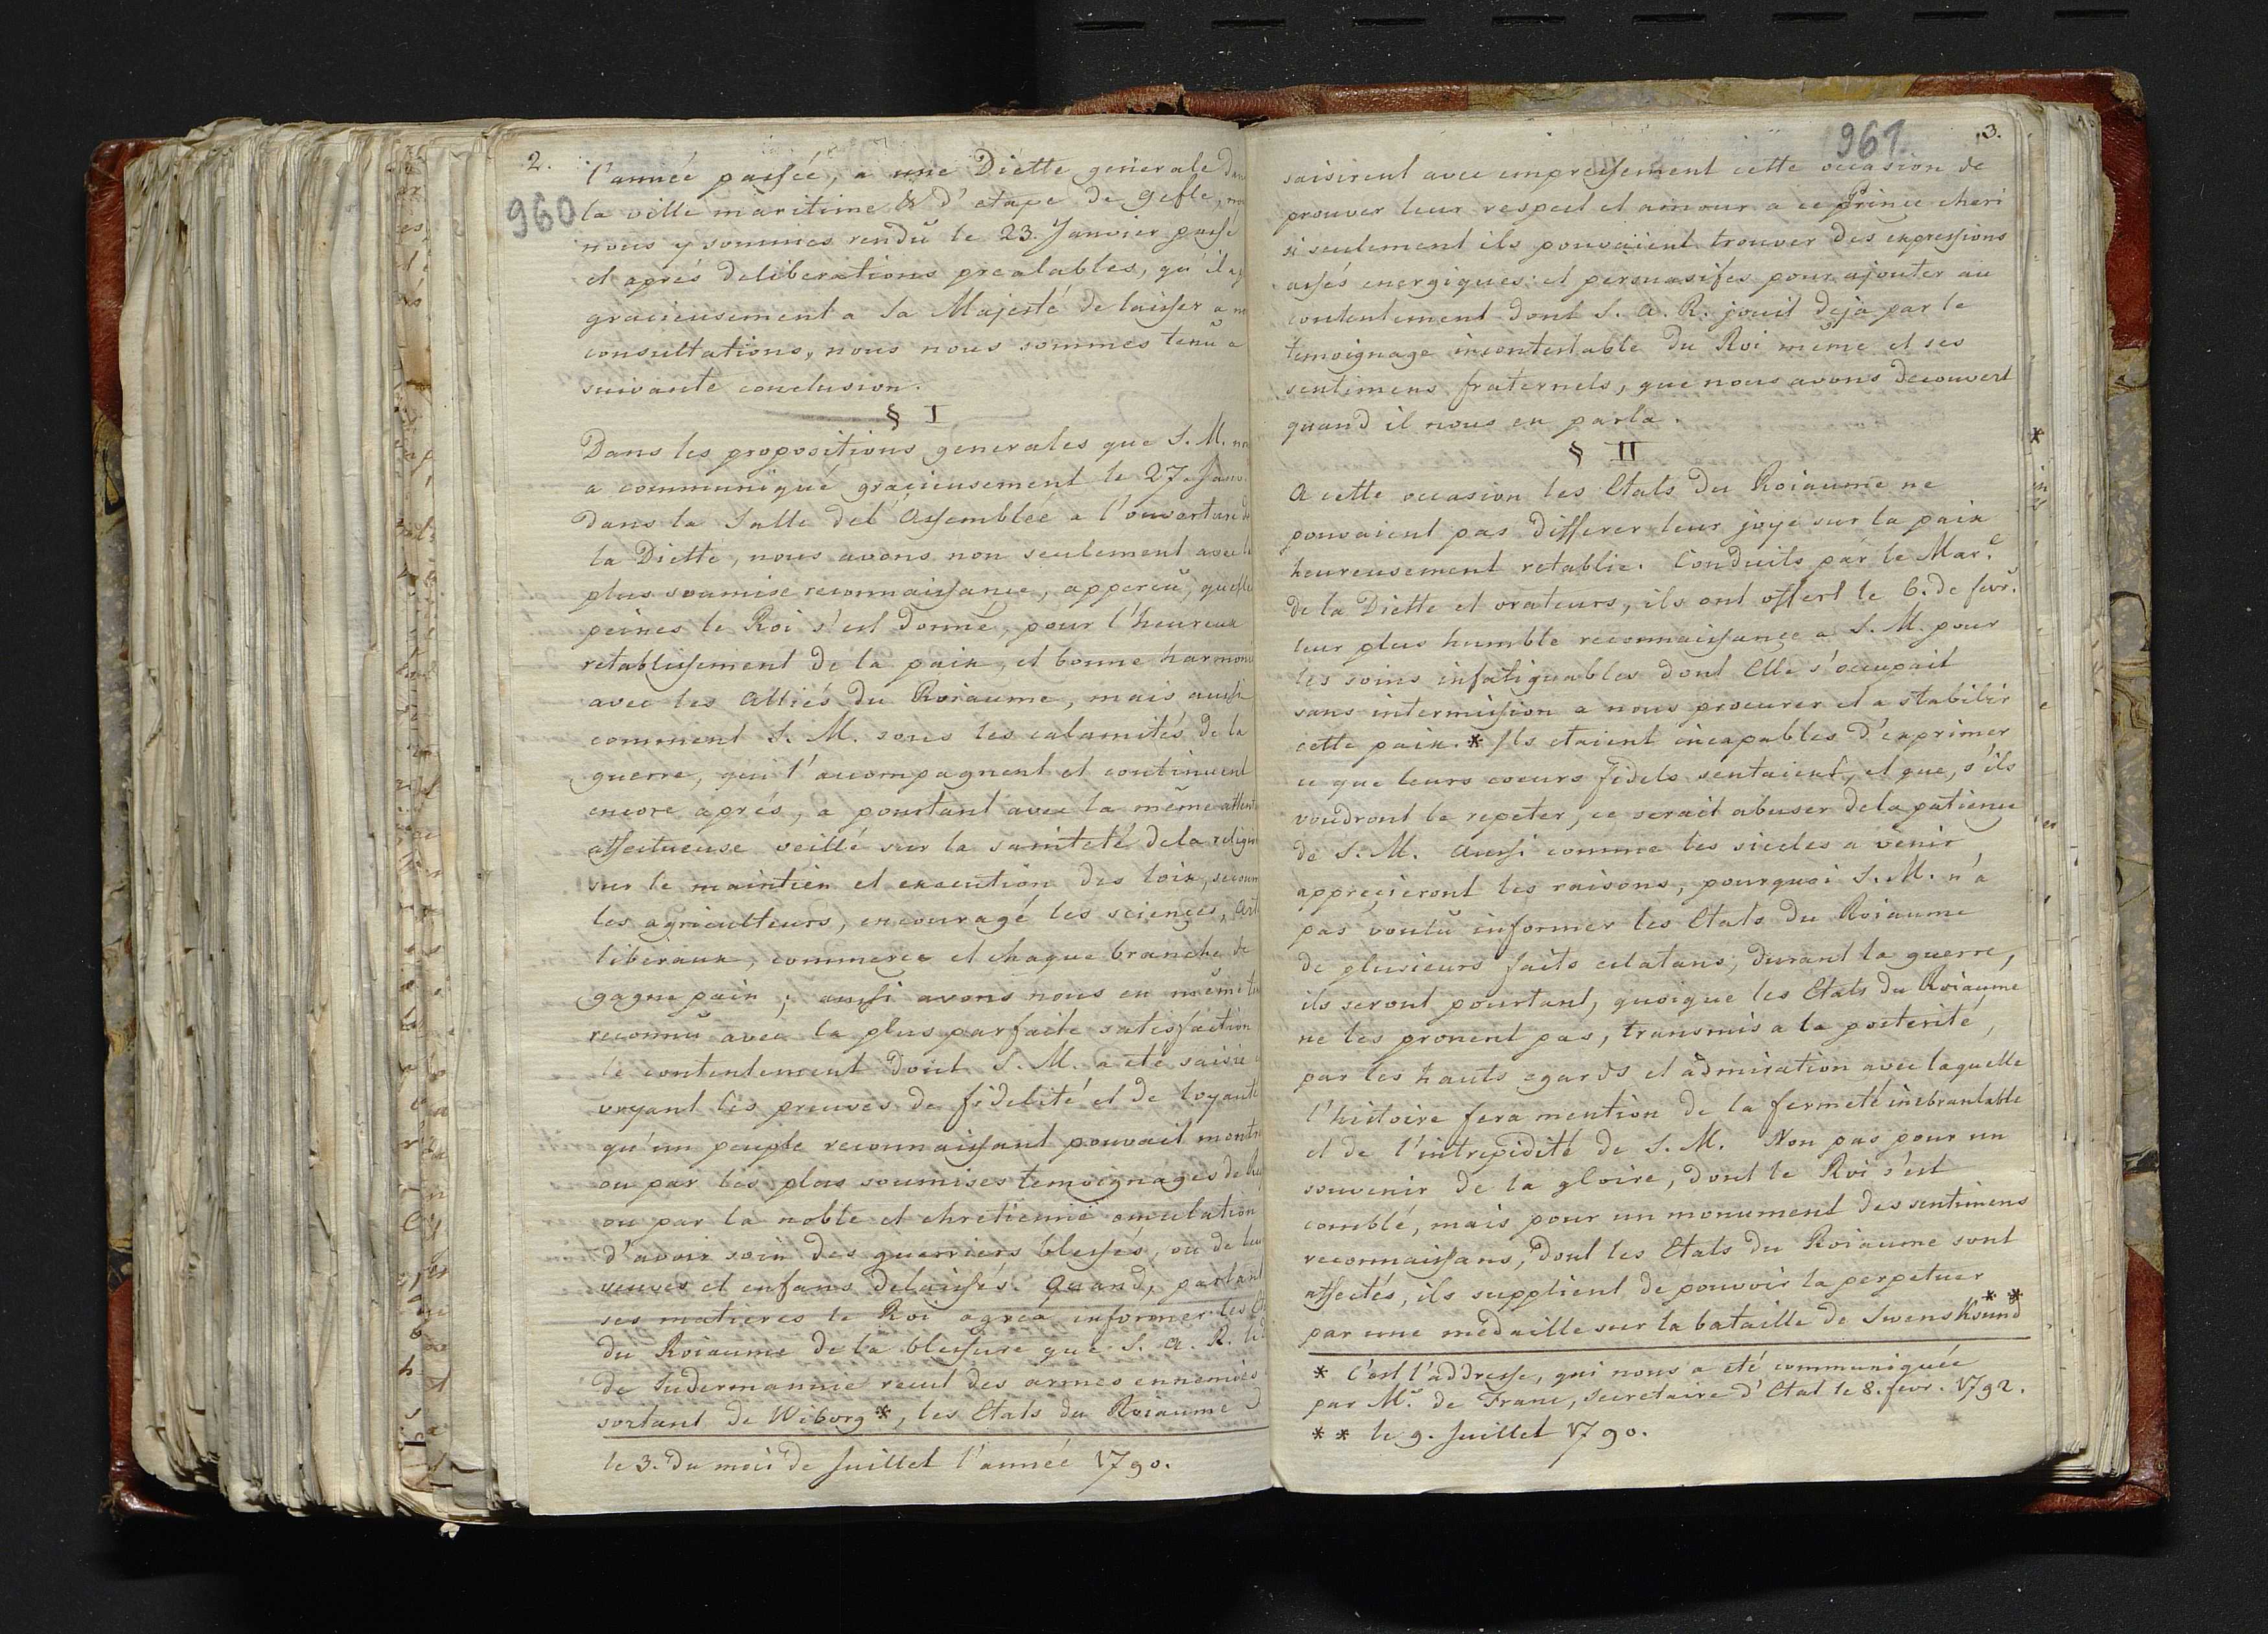 2.
960
l'année passée, a une Diette generale dans
la ville maritime & d'etape de Gefle, nous
nous y sommes rendŭ le 23. Janvier passé
et aprés deliberations prealables, qu'il a
gracieusement a Sa Majesté de laisser a
consultations, nous nous sommes tenŭ a
suivante conclusion.
§ I
Dans les propositions generales que S. M. nous
a communiqué gracieusement le 27. Janv.
dans la Salle del'Assemblée a l'ouverture de
la Diette, nous avons non seulement avec la
plus soumise reconnaissance, apperçu, quelles
peines le Roi s'est donné, pour l'heureux
retablissement de la paix, et bonne harmonie
avec les Alliés du Roiaume, mais aussi
comment S. M. sous les calamités de la
guerre, qui l'accompagnent et continuent
encore aprés, a pourtant avec la même attent
affectueuse veillé sur la sainteté dela religion
sur le maintien et execution des loix, secouru
les agriculteurs, encouragé les sciences, Arts
liberaux, commerce et chaque branche de
gagne pain; aussi avons nous en même tem
reconnŭ avec la plus parfaite satisfaction
le contentement dont S. M. a eté saisie
voyant les preuves de fidelité et de loyauté
qu'un peuple reconnaissant pouvait montrer
ou par les plus soumises temoignages de
ou par la noble et chretienne emulation
d'avoir soin des guerriers blessés, ou de leurs
veuves et enfans delaissés. Quand, parlant
ses matieres le Roi agréa informer les Et
du Roiaume de la blessure que S. A. R. le D
de Sudermannie recut des armes ennemies
sortant de Wiborg *, les Etats du Roiaume
le 3. du mois de Juillet l'année 1790.
961.
3.
saisirent avec empressement cette occasion de
prouver leur respect et amour a ce Prince cheri
si seulement ils pouvaient trouver des expressions
assés energiques et persuasifes pour ajouter au
contentement dont S. A. R. jouit deja par le
temoignage incontestable du Roi même et ses
sentimens fraternels, que nous avons decouvert
quand il nous en parla.
§ II
A cette occasion les Etats du Roiaume ne
pouvaient pas differer leur joye sur la paix
heureusement retablie. Conduits par le Mar.e
de la Diette et orateurs, ils ont offert le 6. de fevr.
leur plus humble reconnaissance a S. M. pour
les soins infatiguables dont Elle s'occupait
sans intermission a nous procurer et a stabilir
cette paix. * Ils etaient incapables d'exprimer
ce que leurs coeurs fidels sentaient, et que, s'ils
voudront le repeter, ce serait abuser dela patience
de S. M. Aussi comme les siecles a venir
apprecieront les raisons, pourquoi S. M. n'a
pas voulŭ informer les Etats du Roiaume
de plusieurs faits eclatans, durant la guerre,
ils seront pourtant, quoique les Etats du Roiaume
ne les pronent pas, transmis a la posterité,
par les hauts egards et admiration avec laquelle
l'histoire fera mention de la fermeté inebranlable
et de l'intrepidité de S. M. Non pas pour un
souvenir de la gloire, dont le Roi s'est
comblé, mais pour un monument des sentimens
reconnaissans, dont les Etats du Roiaume sont
affectés, ils supplient de pouvoir la perpetuer
par une medaille sur la bataille de Swensksund * *
* C'est l'addresse, qui nous a eté communiquée
par Mr. de Franc, secretaire d'Etat le 8. fevr. 1792.
* * le 9. Juillet 1790.